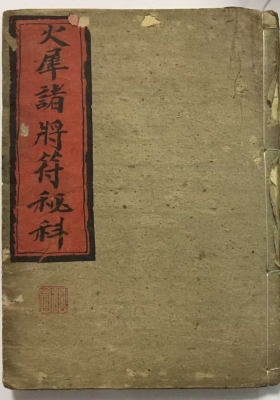 火犀諸將符秘科